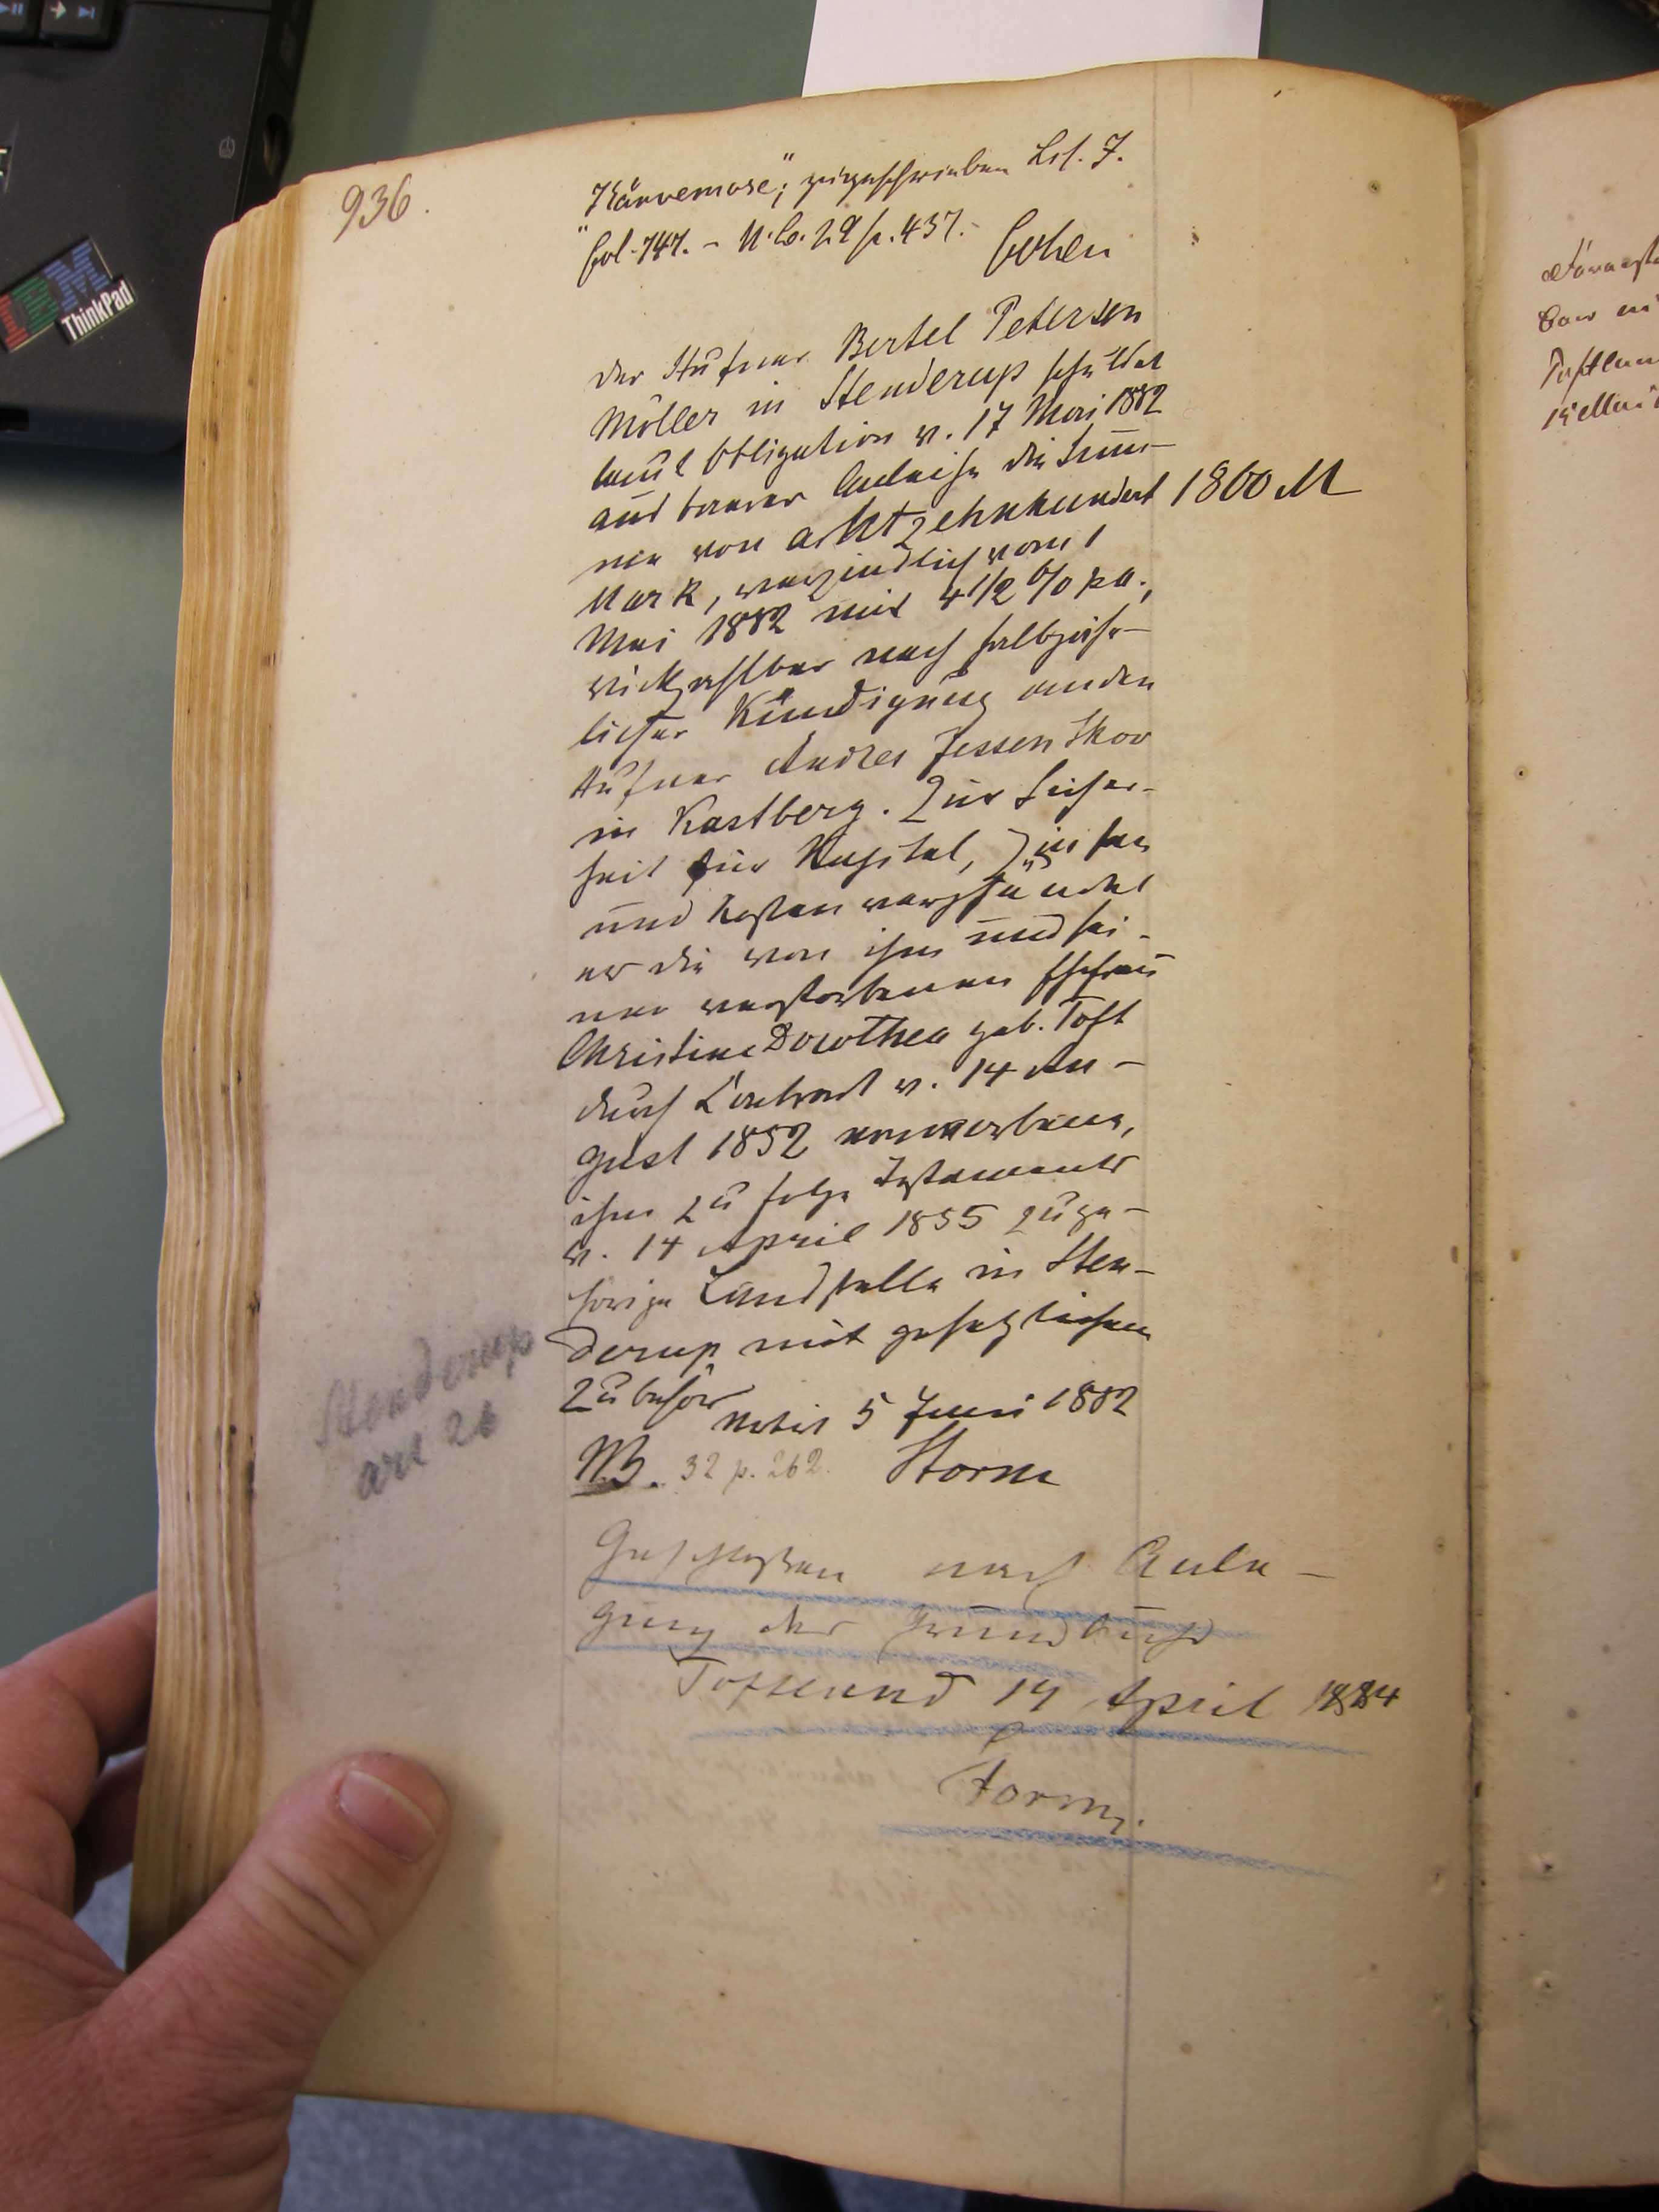 936.
"Kärvemose", zugeschrieben Lit. F.
fol. 747. - N.B. 29 p. 437.
Cohen
Der Hufner Bertel Petersen
Möller in Stenderup schuldet
laut Obligation v. 17 Mai 1882
aus baarer Anleihe die Sum-
me von achtzehnhundert 1800 M
Mark, verzinslich vom 1
Mai 1882 mit 4 1/2 % pa.,
rückzahlbar nach halbjähr-
licher Kündigung an den
Hufner Andres Jessen Skov
in Kastberg. Zur Sicher-
heit für Kapital, Zinsen
und Kosten verpfändet
er die von ihm und sei-
ner verstorbenen Ehefrau
Christine Dorothea geb. Toft
durch Contract v. 14 Au-
gust 1852 erworbene,
ihm zu folge Testaments
v. 14 April 1855 zuge-
hörige Landstelle in Sten-
derup mit gesetzlichem
Zubehör
Notirt 5 Juni 1882
NB. 32 p. 262. Storm
Stenderup
art 26
Geschlossen nach Anle-
gung des Grundbuchs
Toftlund 14 April 1884
Storm.
IBM
ThinkPad
Toftlun